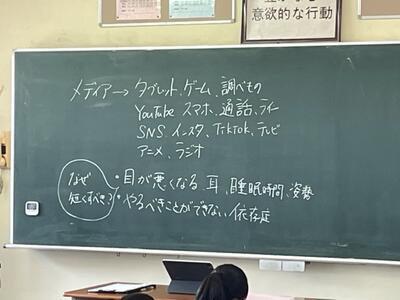 意欲的な行動
メディア→タブレット、ゲーム、調べもの
YouTube スマホ、通話、ライン
SNS インスタ、TikTok、テレビ
アニメ、ラジオ
なぜ
短くすべき?
・目が悪くなる、耳、睡眠時間、姿勢
・やるべきことができない 依存症